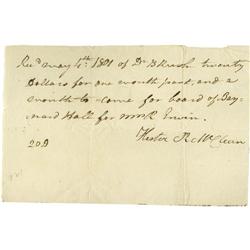 Rec'd may 4th 1801 of Dr B Rush twenty
Dollars for one month past, and a
month to come for board of Bay-
nard Hall for mrs R Erwin.
20D
Hester R McClean